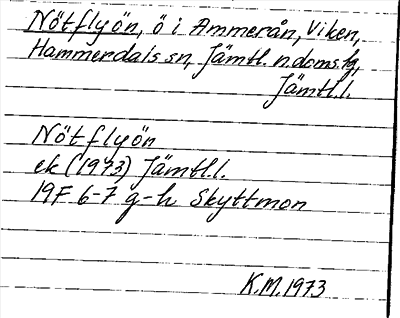 Nötflyön, ö i Ammerån, Viken,
Hammerdals sn, Jämtl. n.doms.lg,
Jämtl.l.
Nötflyön
ek (1973) Jämtl.l.
19F 6-7 g-h Skyttmon
K.M. 1973